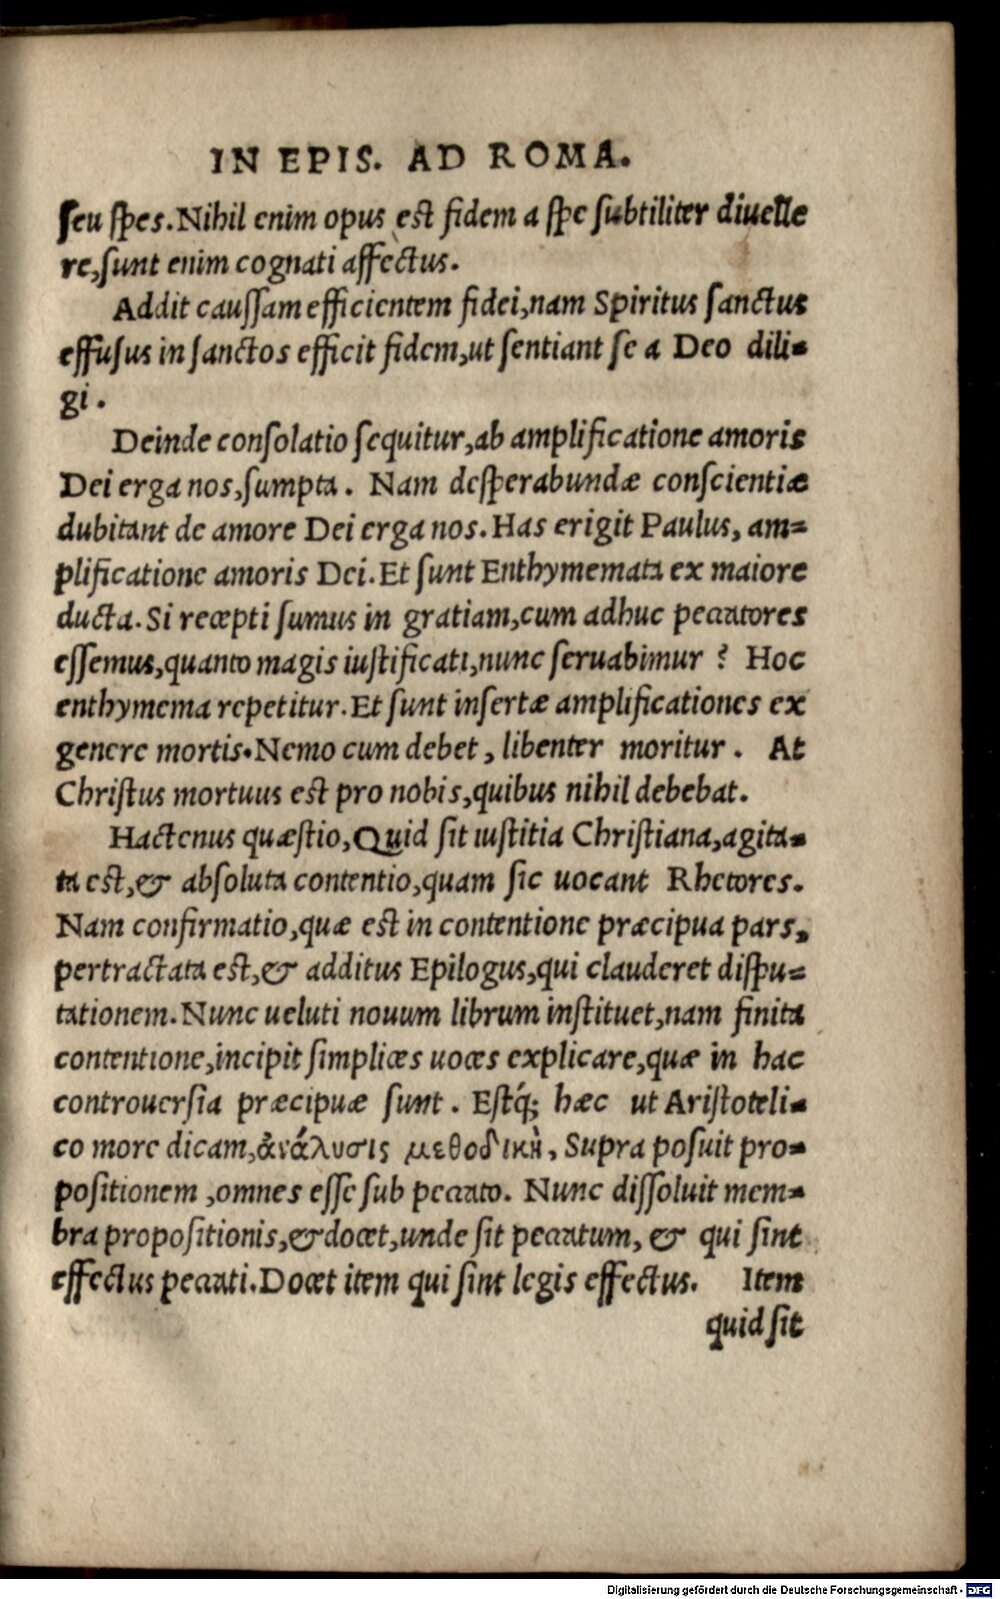 IN EPIS. AD ROMA.
ſeu ſpes. Nihil enim opus eſt fidem a ſpe ſubtiliter diuelle
re, ſunt enim cognati affectus.
Addit cauſſam efficientem fidei, nam Spiritus ſanctus
effuſus in ſanctos efficit fidem, ut ſentiant ſe a Deo dili-
gi.
Deinde conſolatio ſequitur, ab amplificatione amoris
Dei erga nos, ſumpta. Nam deſperabundæ conſcientiæ
dubitant de amore Dei erga nos. Has erigit Paulus, am=
plificatione amoris Dei. Et ſunt Enthymemata ex maiore
ducta. Si recepti ſumus in gratiam, cum adhuc peccatores
eſſemus, quanto magis iuſtificati, nunc ſeruabimur? Hoc
enthymema repetitur. Et ſunt inſertæ amplificationes ex
genere mortis. Nemo cum debet, libenter moritur. At
Chriſtus mortuus eſt pro nobis, quibus nihil debebat.
Hactenus quæſtio, Quid ſit iuſtitia Chriſtiana, agita-
ta eſt, & abſoluta contentio, quam ſic uocant Rhetores.
Nam confirmatio, quæ eſt in contentione præcipua pars,
pertractata eſt, & additus Epilogus, qui clauderet diſpu=
tationem. Nunc ueluti nouum librum inſtituet, nam finita
contentione, incipit ſimplices uoces explicare, quæ in hac
controuerſia præcipuæ ſunt. Eſtq́; hæc ut Ariſtoteli-
co more dicam, ἀνάλυσις μεθοδικὴ, Supra poſuit pro-
poſitionem, omnes eſſe ſub peccato. Nunc diſſoluit mem-
bra propoſitionis, & docet, unde ſit peccatum, & qui ſint
effectus peccati. Docet item qui ſint legis effectus. Item
quid ſit
Digitalisierung gefördert durch die Deutsche Forschungsgemeinschaft - DFG